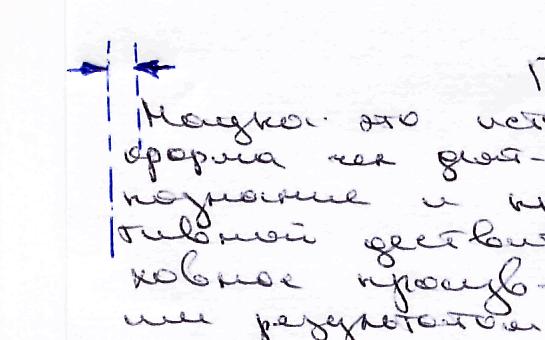 П
Наука это ист
форма чек деят-
познание и п
тивной дествит
ховное произв-
ши результатом